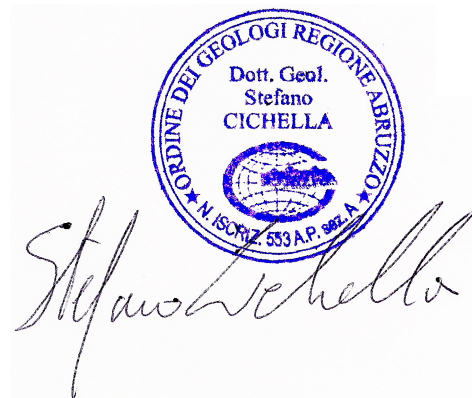 ORDINE DEI GEOLOGI REGIONE ABRUZZO
Dott. Geol.
Stefano
CICHELLA
★ N. ISCRIZ. 553 A.P. sez. A ★
Stefano Cichella